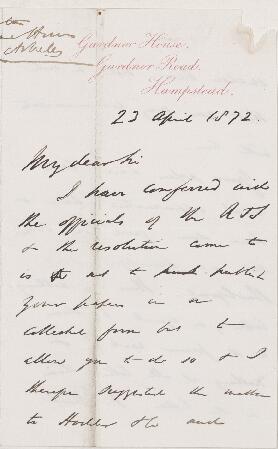 Gardnor House.
Gardnor Road.
Hampstead.
23 April 1872.
My dear Sir
I have conferred with
the officials of the RTS
& the resolution come to
is not to publish
your papers in a
collected form but to
allow you to do so & I
therefore suggested the matter
to Hodder & Co and